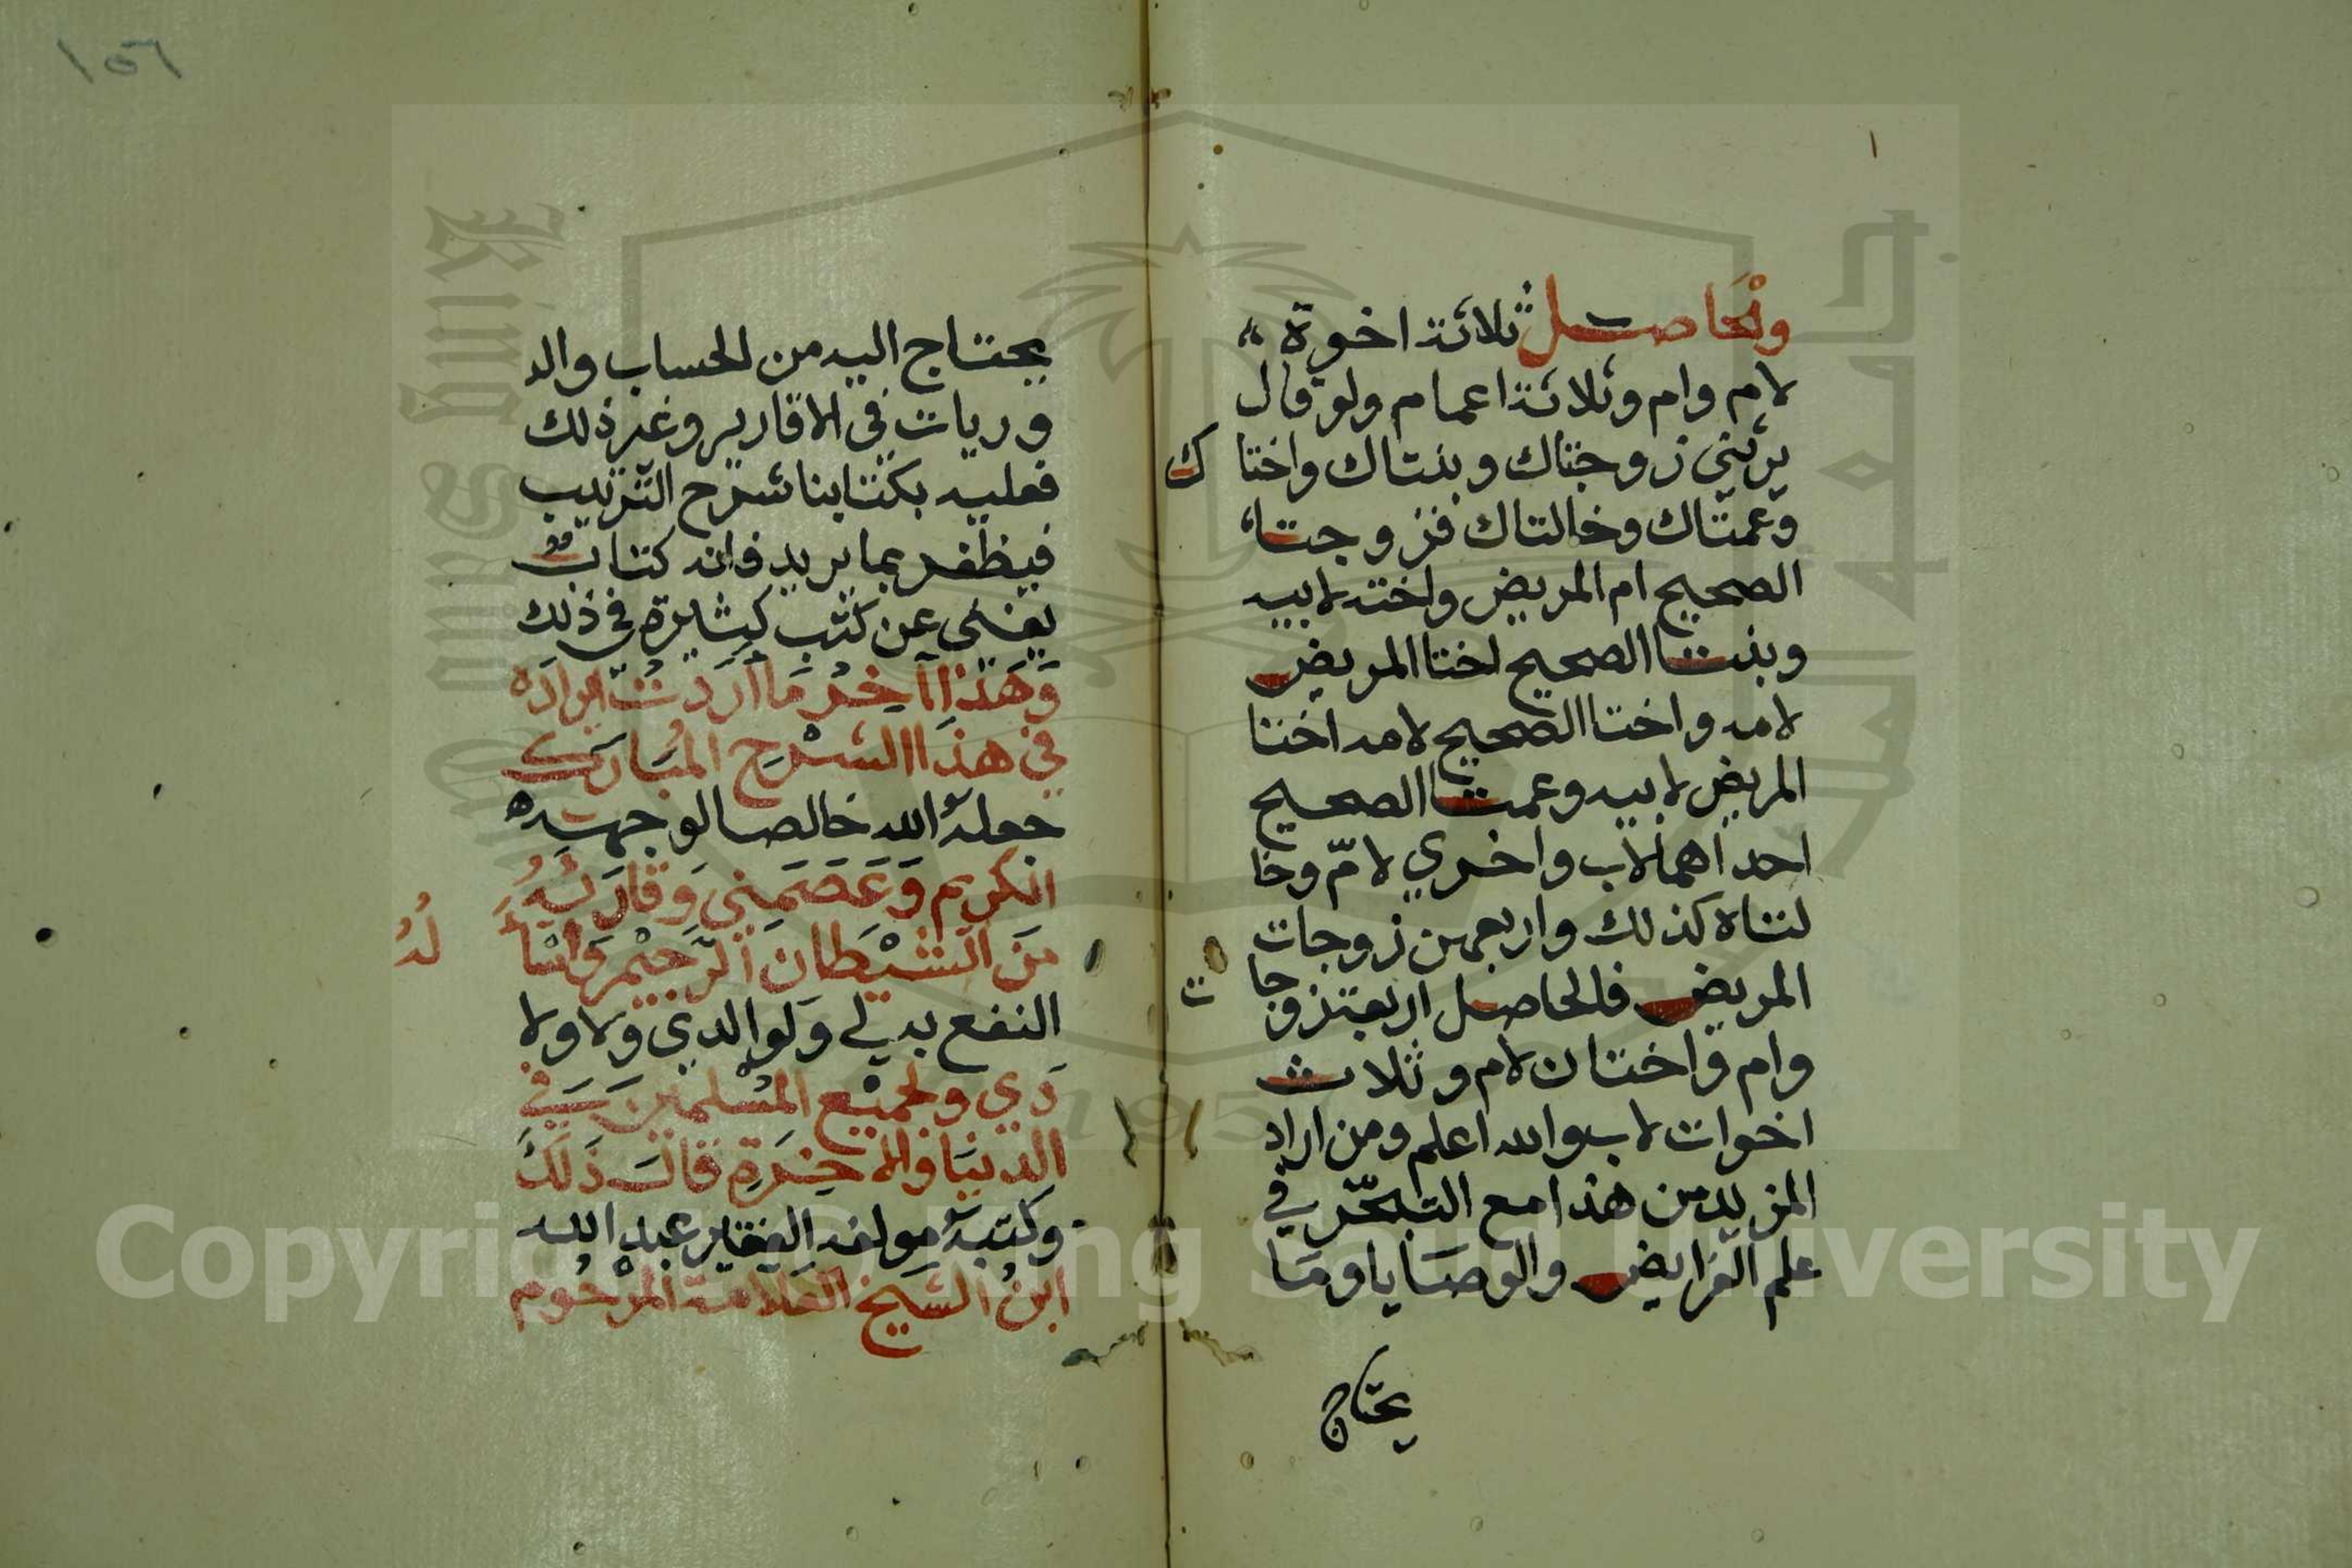 والحاصل ثلاثة اخوة
لام وام وثلاثة اعمام ولو قال
يرثني زوجتاك وبنتاك واختاك
وعمتاك وخالتاك فزوجتا
الصحيح ام المريض واخته لابيه
وبنتا الصحيح اختا المريض
لامه واختا الصحيح لامه اختا
المريض لابيه وعمتا الصحيح
احداهما لاب واخري لام وخا
لتاه كذلك واربعهن زوجات
المريض فالحاصل اربع زوجات
وام واختان لام وثلاث
اخوات لاب والله اعلم ومن اراد
المزيد من هذا مع التبحّر في
علم الفرايض والوصايا وما
يحتاج
١٥٦
يحتاج اليه من الحساب والد
وريات في الاقارير وغير ذلك
فعليه بكتابنا شرح الترتيب
فيظفر بما يريد فانه كتاب
يغني عن كتب كثيرة في ذلك
وَهَذا آخِرُ مَا اَرَدتُ ايرادَه
في هذا الشَرْحِ المُبَارَك
جعله الله خالصا لوجهه
الكريم وَعَصَمَني وَقارئهُ
مِنَ الشيْطانِ الرَّجيْمِ وَاسْأَلُهُ
النفع به لي وَلوالدي ولاولا
دَي ولجميْع المُسْلمين في
الدنيَا والاخِرَةِ قالَ ذَلكَ
وكتبهُ مولفه الفقير عبد الله
ابنُ الشيخ العلامة المرْحُوم
Copyright © King Saud University
1957